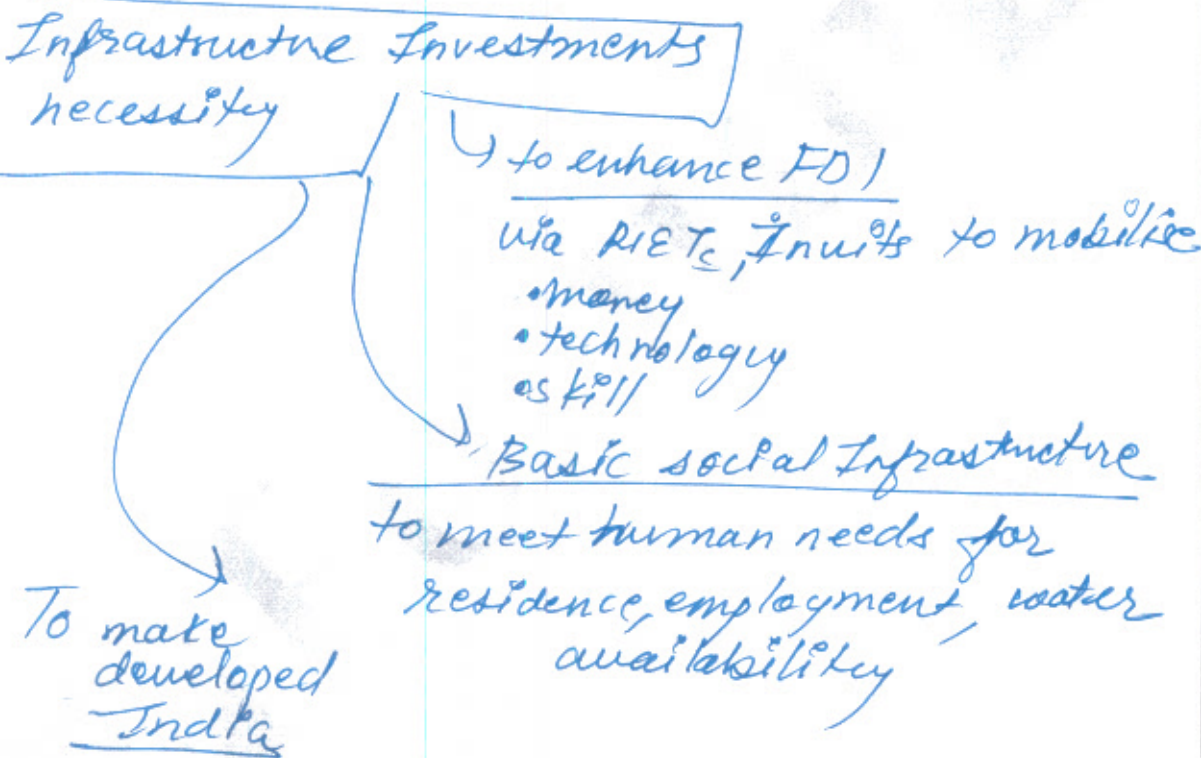 Infrastructure Investments
necessity
to enhance FDI
via RIETs, Invits to mobilise
• money
• technology
• skill
Basic social Infrastructure
to meet human needs for
residence, employment, water
availability
To make
developed
India